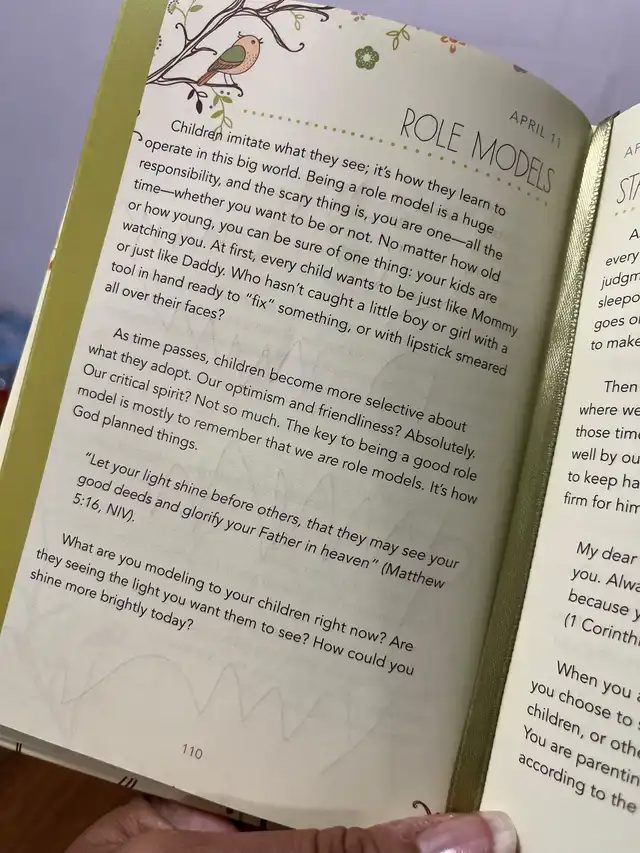 APRIL 11
ROLE MODELS
Children imitate what they see; it's how they learn to
operate in this big world. Being a role model is a huge
responsibility, and the scary thing is, you are one—all the
time—whether you want to be or not. No matter how old
or how young, you can be sure of one thing: your kids are
watching you. At first, every child wants to be just like Mommy
or just like Daddy. Who hasn't caught a little boy or girl with a
tool in hand ready to "fix" something, or with lipstick smeared
all over their faces?
As time passes, children become more selective about
what they adopt. Our optimism and friendliness? Absolutely.
Our critical spirit? Not so much. The key to being a good role
model is mostly to remember that we are role models. It's how
God planned things.
"Let your light shine before others, that they may see your
good deeds and glorify your Father in heaven" (Matthew
5:16, NIV).
What are you modeling to your children right now? Are
they seeing the light you want them to see? How could you
shine more brightly today?
110
every
sleepo
goes o
to make
Then
where we
those time
well by ou
to keep ha
firm for him
My dear
you. Alwa
because y
(1 Corinth
When you a
you choose to s
children, or othe
You are parentin
according to the